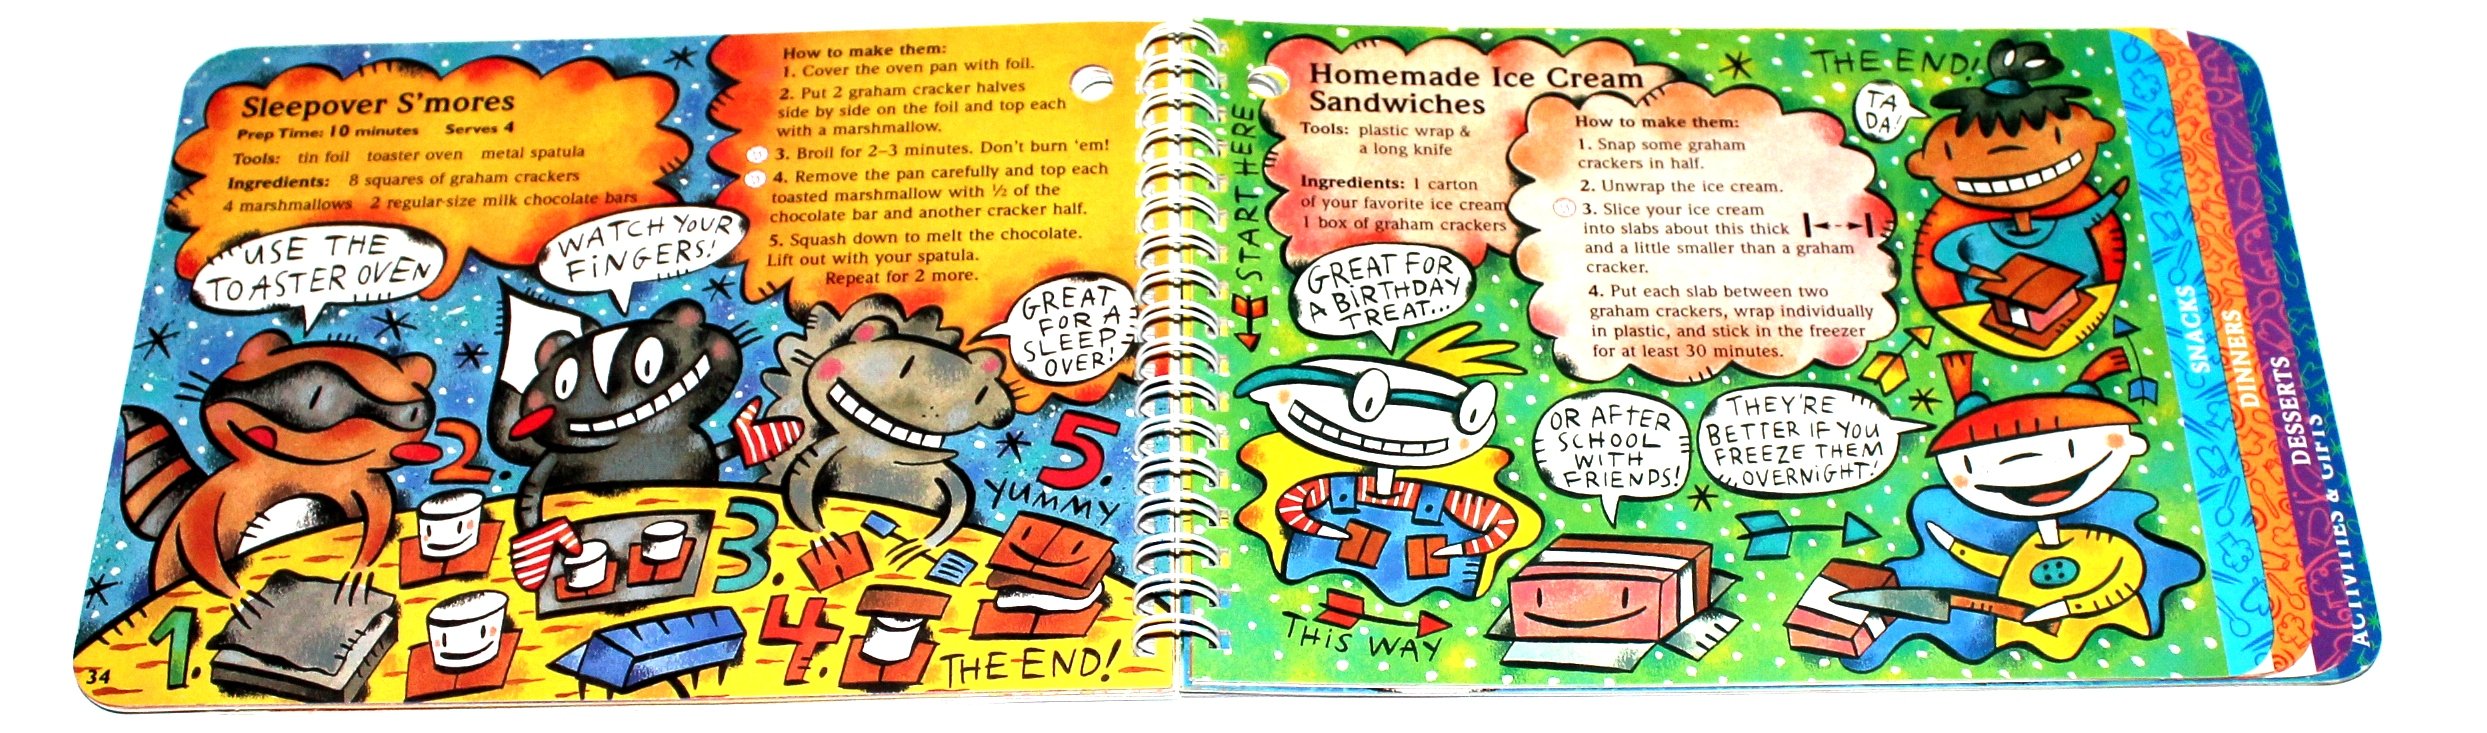 Sleepover S'mores
Prep Time: 10 minutes Serves 4
Tools: tin foil toaster oven metal spatula
Ingredients: 8 squares of graham crackers
4 marshmallows 2 regular-size milk chocolate bars
How to make them:
1. Cover the oven pan with foil.
2. Put 2 graham cracker halves
side by side on the foil and top each
with a marshmallow.
3. Broil for 2–3 minutes. Don't burn 'em!
4. Remove the pan carefully and top each
toasted marshmallow with ½ of the
chocolate bar and another cracker half.
5. Squash down to melt the chocolate.
Lift out with your spatula.
Repeat for 2 more.
USE THE
TOASTER OVEN
WATCH YOUR
FINGERS!
GREAT
FOR A
SLEEP-
OVER!
1.
2.
3.
4.
5.
YUMMY
THE END!
34
START HERE
Homemade Ice Cream
Sandwiches
Tools: plastic wrap &
a long knife
Ingredients: 1 carton
of your favorite ice cream
1 box of graham crackers
How to make them:
1. Snap some graham
crackers in half.
2. Unwrap the ice cream.
3. Slice your ice cream
into slabs about this thick
and a little smaller than a graham
cracker.
4. Put each slab between two
graham crackers, wrap individually
in plastic, and stick in the freezer
for at least 30 minutes.
THE END!
TA
DA!
GREAT FOR
A BIRTHDAY
TREAT...
OR AFTER
SCHOOL
WITH
FRIENDS!
THEY'RE
BETTER IF YOU
FREEZE THEM
OVERNIGHT!
THIS WAY
SNACKS
DINNERS
DESSERTS
ACTIVITIES & GIFTS